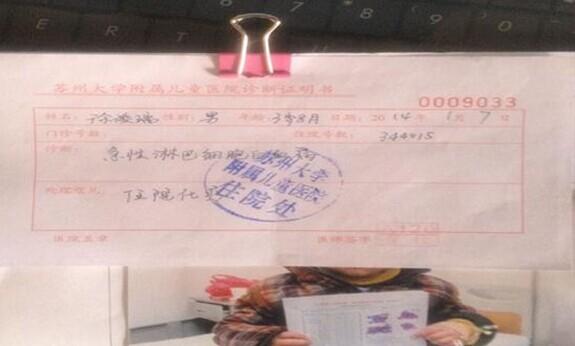 苏州大学附属儿童医院诊断证明书
0009033
姓名: 性别: 男 年龄 3岁8月 日期: 2014年1月7日
门诊号数: 住院号数: 344415
诊断: 急性淋巴细胞白血病
处理意见: 住院化疗
苏州大学
附属儿童医院
住院处
医院盖章 医师签字